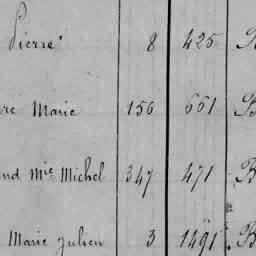 Pierre 8 425 B
re Marie 156 661 B
nd Mie Michel 347 471 B
Marie Julien 3 1491 B